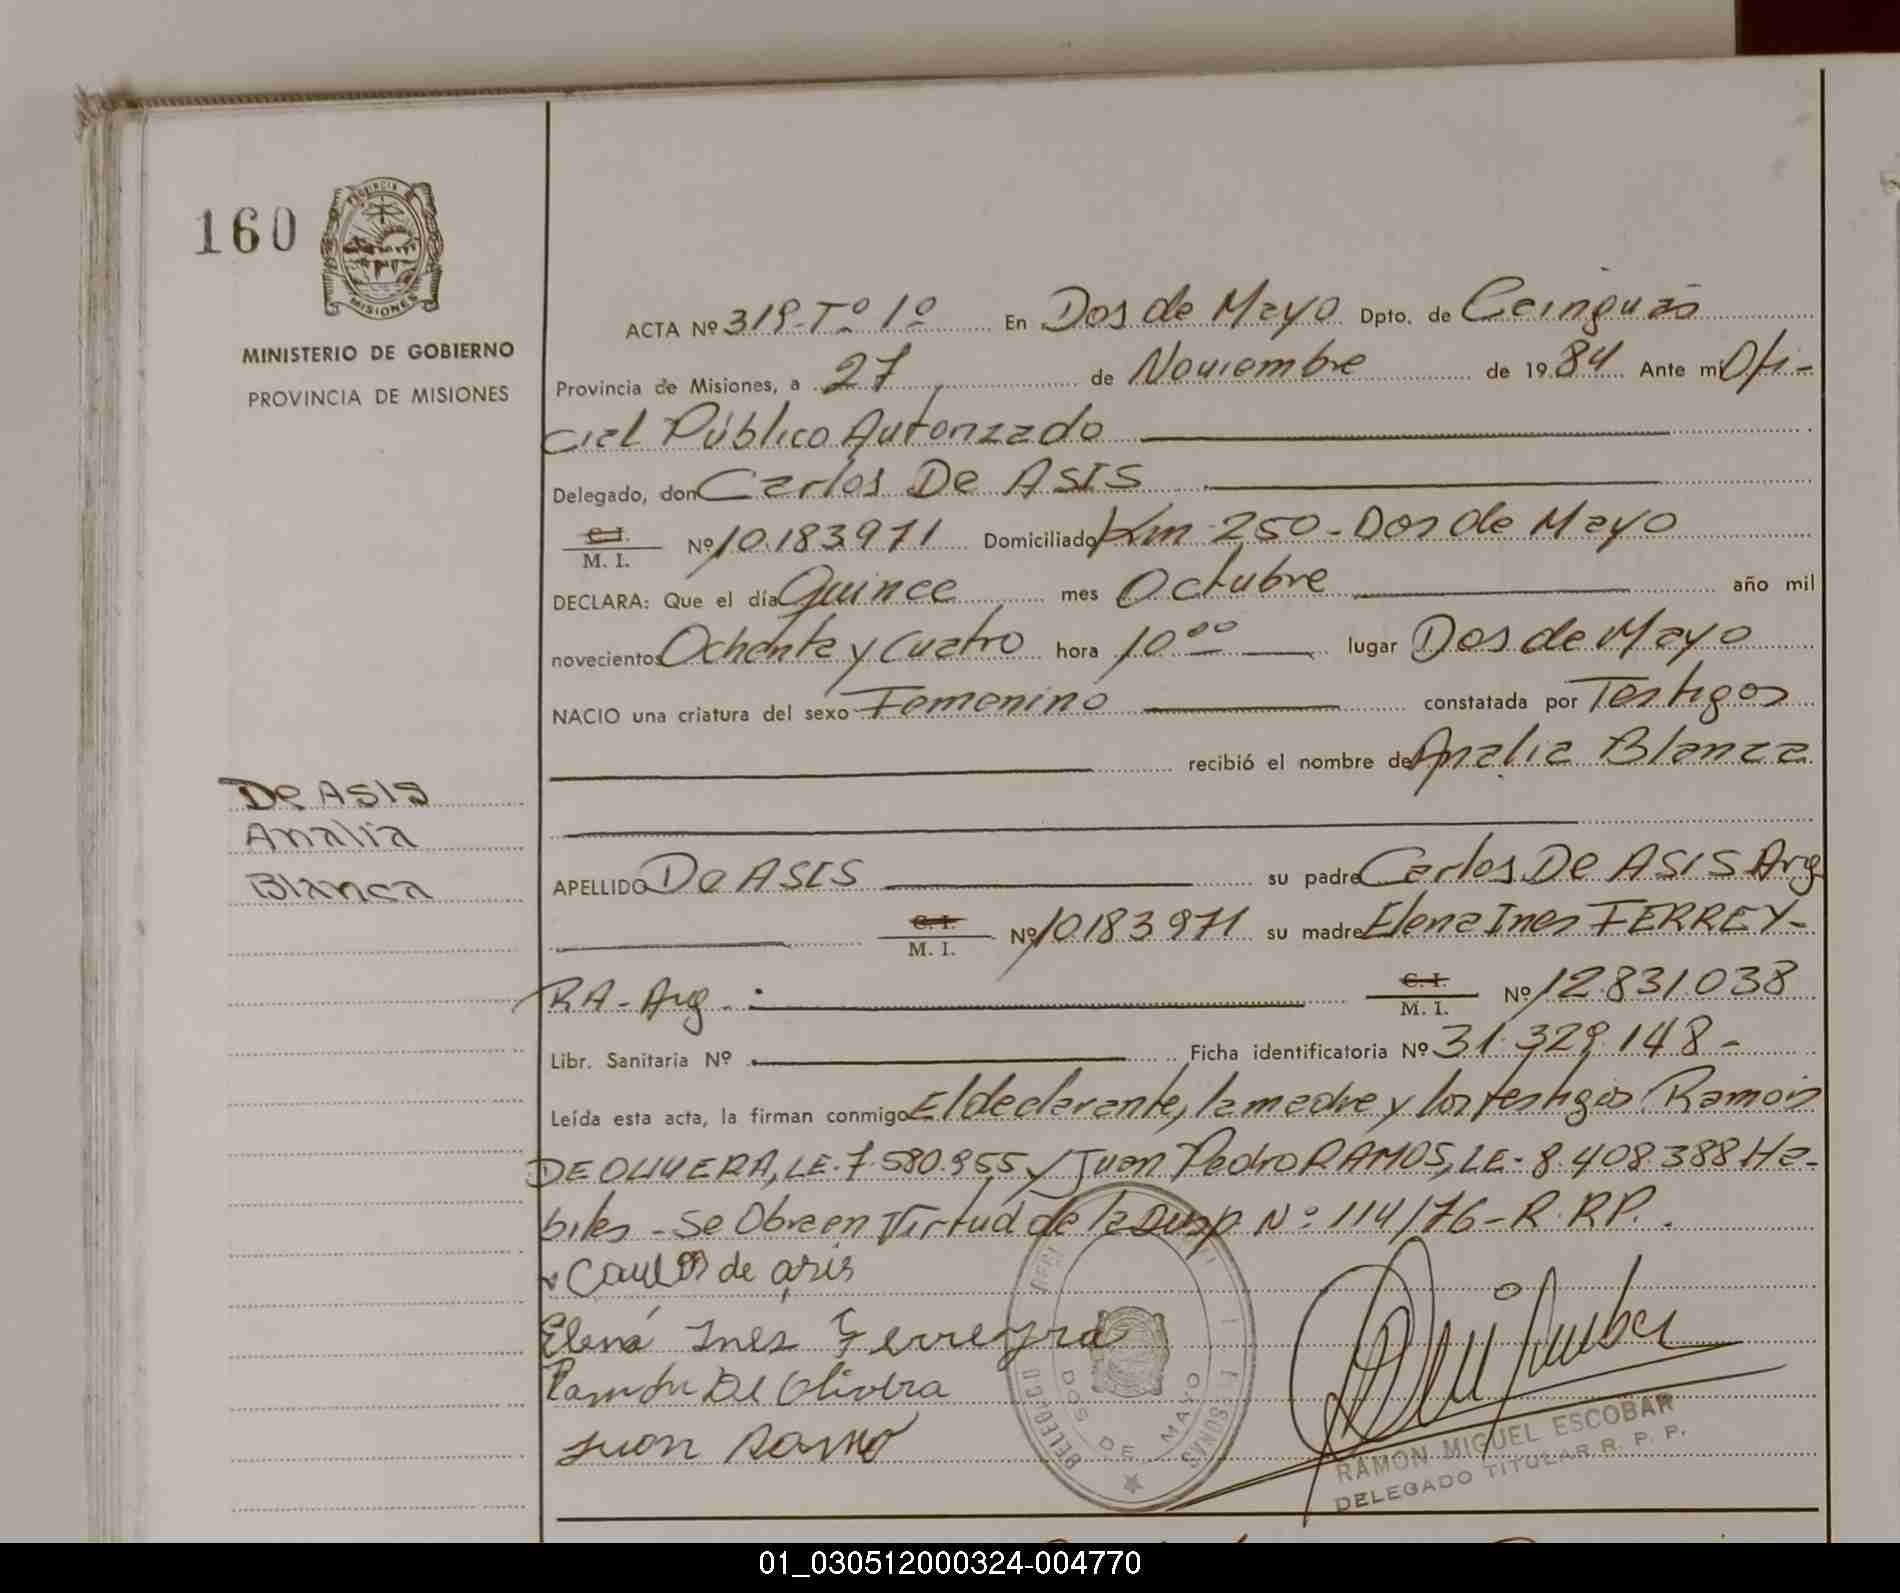 160
PROVINCIA
MISIONES
MINISTERIO DE GOBIERNO
PROVINCIA DE MISIONES
ACTA Nº 319-Tº 1º En Dos de Mayo Dpto. de Cainguás
Provincia de Misiones, a 27 de Noviembre de 1984 Ante mi Ofi-
cial Público Autorizado
Delegado, don Carlos De ASIS
C. I.
M. I. Nº 10.183.971 Domiciliado Km 250 - Dos de Mayo
DECLARA: Que el día Quince mes Octubre año mil
novecientos Ochenta y Cuatro hora 10°° lugar Dos de Mayo
NACIO una criatura del sexo Femenino constatada por Testigos
recibió el nombre de Analia Blanca
De ASIS
Analia
Blanca
APELLIDO De ASIS su padre Carlos De ASIS Arg
C. I.
M. I. Nº 10.183.971 su madre Elena Ines FERREY-
RA - Arg - C. I.
M. I. Nº 12.831.038
Libr. Sanitaria Nº Ficha identificatoria Nº 31.329.148 -
Leída esta acta, la firman conmigo El declarante, la madre y los testigos Ramón
DE OLIVERA, LE. 7.580.955 y Juan Pedro RAMOS, LE - 8.408.388 Ha-
biles - Se Obra en Virtud de la Disp. Nº 114/76 - R. RP.
Carlos de asis
Elena Ines Ferreyra
Ramon De Olivera
Juan Ramo
DELEG.
DOS DE MAYO
RAMON MIGUEL ESCOBAR
DELEGADO TITULAR R. P. P.
01_030512000324-004770